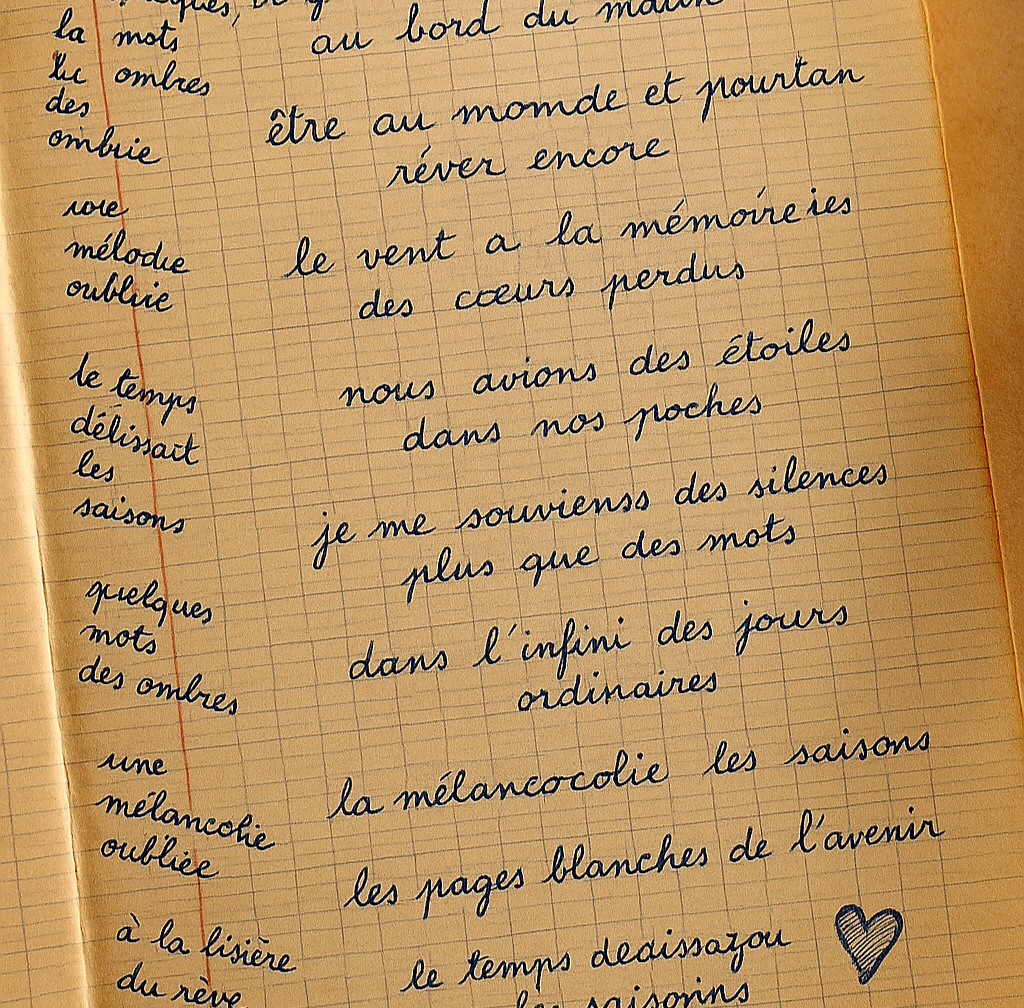 la mots
ombres
des
ombrie
mélodie
oubliie
le temps
délissait
les
saisons
quelques
mots
des ombres
une
mélancolie
oubliée
à la lisière
du rêve
au bord du
être au momde et pourtan
réver encore
le vent a la mémoire ies
des cœurs perdus
nous avions des étoiles
dans nos poches
je me souvienss des silences
plus que des mots
dans l'infini des jours
ordinaires
la mélancocolie les saisons
les pages blanches de l'avenir
le temps